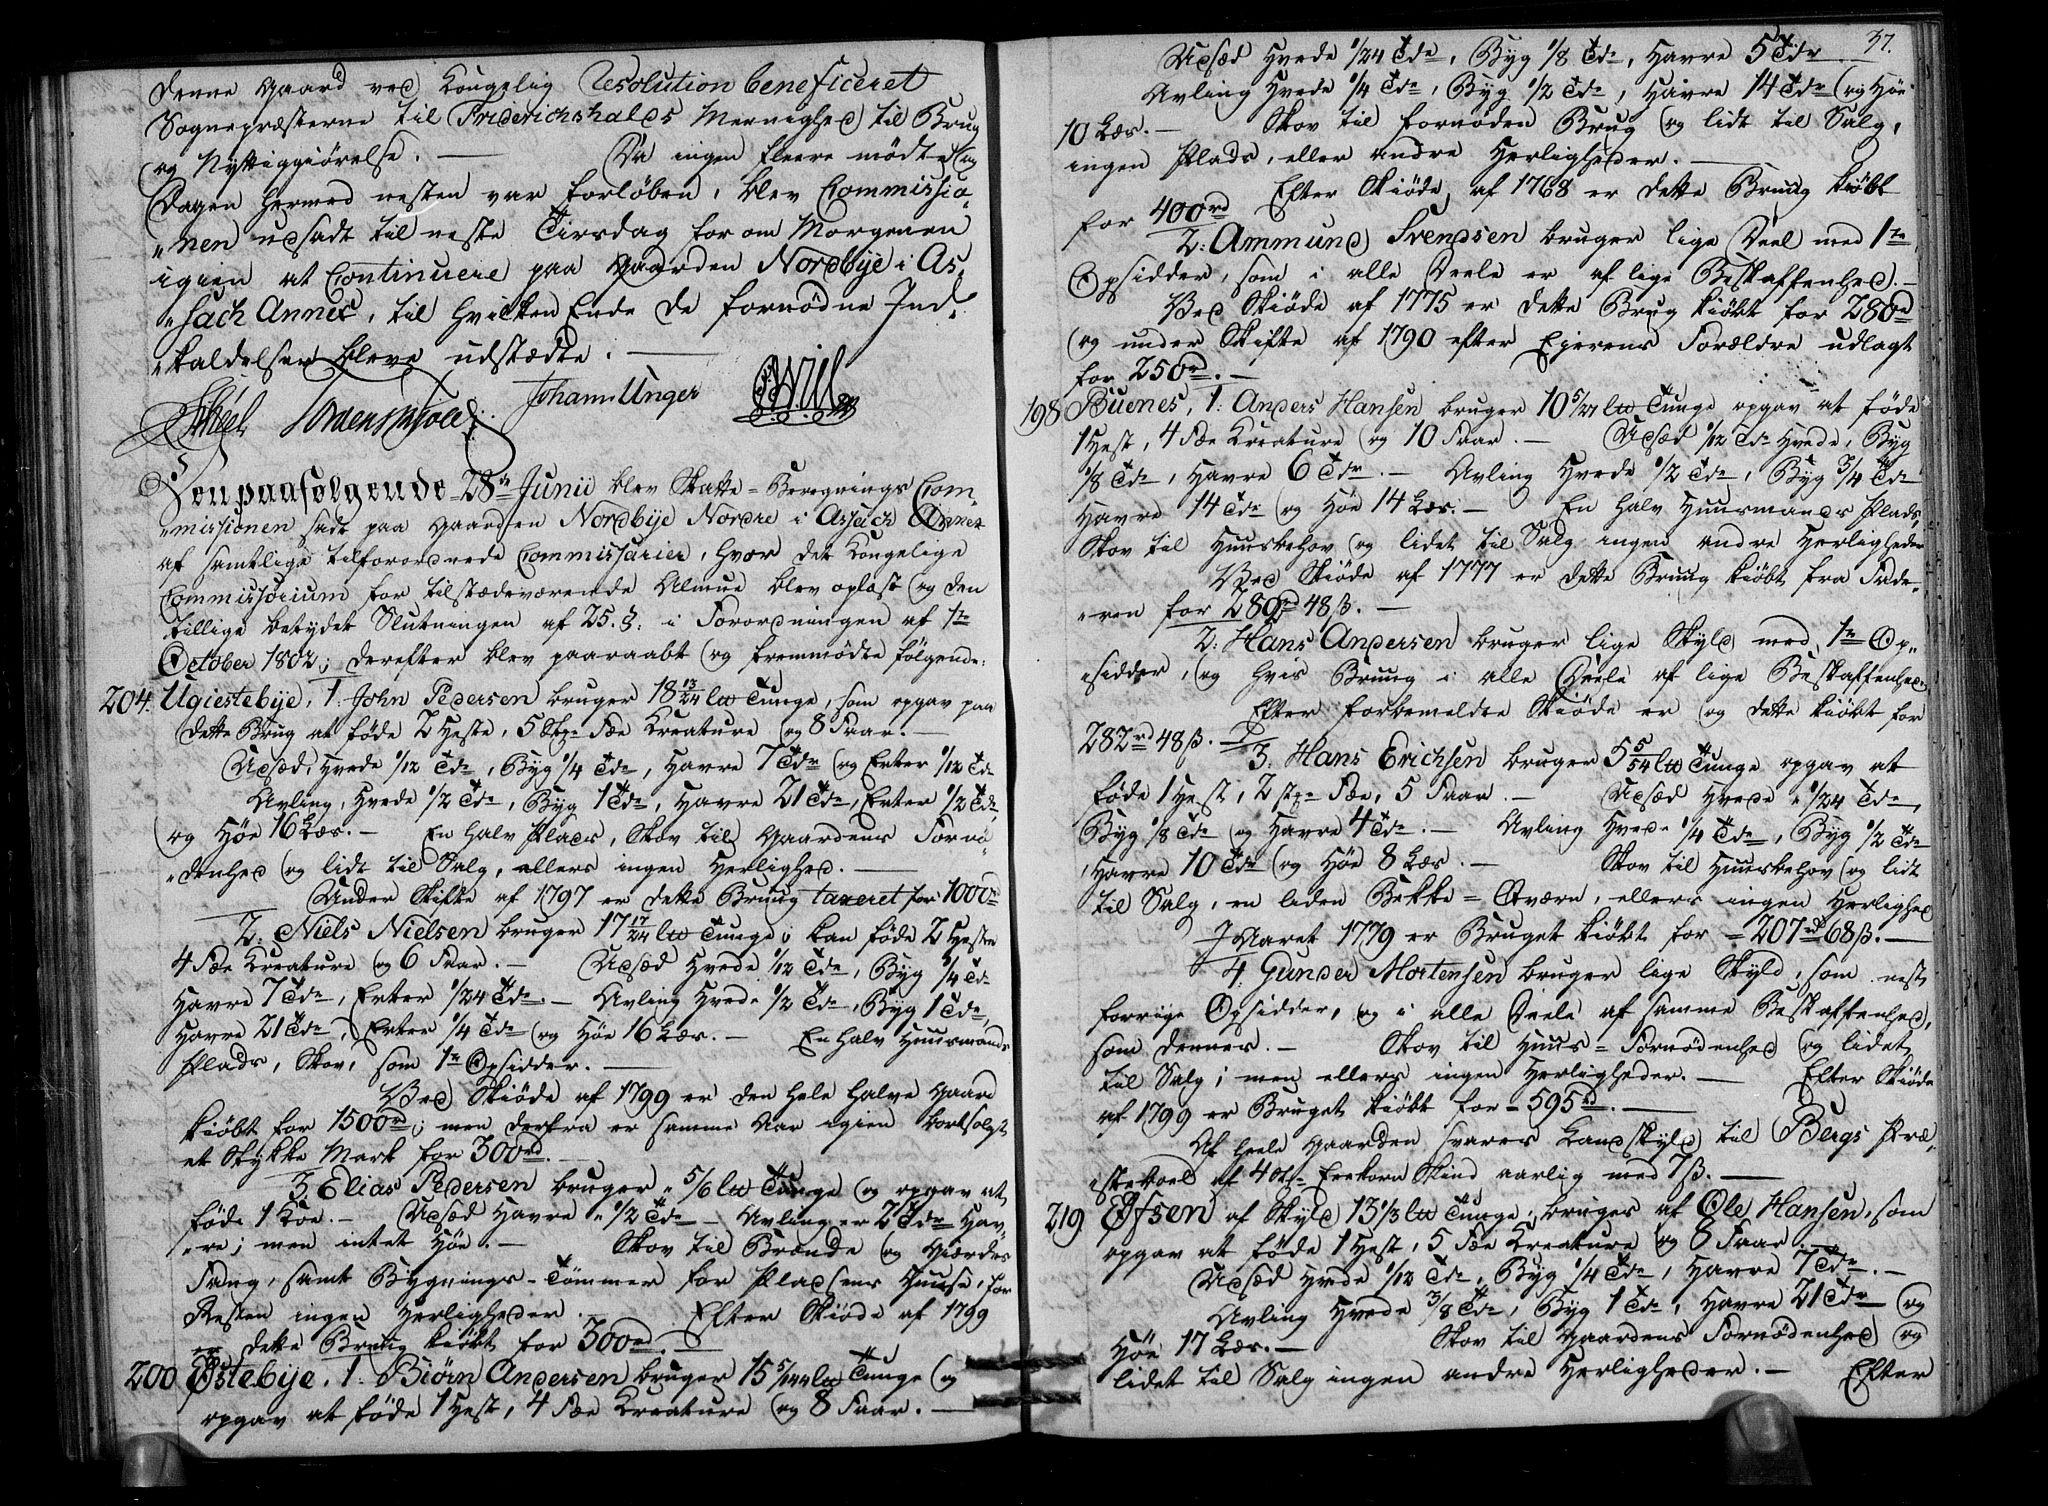 denne Gaard ved Kongelig Resolution beneficeret
Sognepræsterne til Friderichshalds Meenighed til Brug
og Nyttiggiörelse. — Da ingen fleere mødte og
Dagen hermed nesten var forløben, blev Commissio„
„nen udsadt til neste Tirsdag for om Morgenen
igien at Continuere paa Gaarden Nordbye i As„
„sach Annex, til hvilken Ende de fornødne Ind„
„kaldelser bleve udstædte. —
Johann Unger
Den paafølgende 28de Junii blev Skatte-Beregnings Com„
„missionen sadt paa Gaarden Nordbije Nordre i Assach Annex
af samtlige tilforordnede Commissarier, hvor det Kongelige
Commissorium for tilstædeværende Almue blev oplæst og den
tillige betydet Slutningen af 25. §. i Forordningen af 1te
October 1802; derefter blev paaraabt og fremmødte følgende:
204. Ugiestebije, 1. John Pedersen bruger 18 13/24 lb Tunge, som opgav paa
dette Brug at føde 2 Heste, 5 Stk. Fæe Kreature og 8 Faar. —
Udsæd, Hvede 1/12 Tde, Byg 1/4 Tde, Havre 7 Tdr og Erter 1/12 Tde
Avling, Hvede 1/2 Tde, Byg 1 Tde, Havre 21 Tdr, Erter 1/2 Tde,
og Høe 16 Læs. — En halv Plads, Skov til Gaardens Fornö„
„denhed og lidt til Salg, ellers ingen Herlighed. —
Under Skifte af 1797 er dette Bruug taxeret for 1000 rd
2. Niels Nielsen bruger 17 17/24 lb Tunge; kan føde 2 Heste
4 Fæe Kreature og 6 Faar. — Udsæd Hvede 1/12 Tde, Byg 1/4 Tde
Havre 7 Tdr, Erter 1/24 Tde. — Avling Hvede 1/2 Tde, Byg 1 Tde,
Havre 21 Tdr, Erter 1/4 Tde og Høe 16 Læs. — En halv Huusmands
Plads, Skov, som 1te Opsidder. —
Ved Skiöde af 1799 er den hele halve Gaard
kiöbt for 1500 rd; men derfra er samme Aar igien bortsolgt
et Stykke Mark for 300 rd. —
3. Elias Pedersen bruger „ 5/6 lb Tunge og opgav at
føde 1 Koe. — Udsæd Havre „ 1/2 Tde — Avling er 2 Tdr Hav„
„re; men intet Høe. — Skov til Brænde og Giærdes
Fang, samt Bygnings-Tömmer for Pladsens Huuse, for
Resten ingen Herligheder. — Efter Skiöde af 1799
er dette Bruug kiöbt for 300 rd. —
200 Östebije, 1. Biörn Andersen bruger 15 5/144 lb Tunge og
opgav at føde 1 Hest, 4 Fæe Kreature og 8 Faar. —
37.
Udsæd Hvede 1/24 Tde, Byg 1/8 Tde, Havre 5 Tdr
Avling Hvede 1/4 Tde, Byg 1/2 Tde, Havre 14 Tdr og Høe
10 Læs. — Skov til fornøden Brug og lidt til Salg,
ingen Plads, eller andre Herligheder. —
Efter Skiöde af 1768 er dette Bruug kiöbt
for 400 rd
2. Ammund Svendsen bruger lige Deel med 1te
Opsidder, som i alle Deele er af lige Beskaffenhed. —
Ved Skiöde af 1775 er dette Brug kiöbt for 280 rd
og under Skifte af 1790 efter Ejerens Forældre udlagt
for 250 rd. —
198 Buenes, 1. Anders Hansen bruger 10 5/27 lb Tunge opgav at føde
1 Hest, 4 Fæe Kreature og 10 Faar. — Udsæd 1/12 Tde Hvede, Byg
1/8 Tde, Havre 6 Tdr. — Avling Hvede 1/2 Tde, Byg 3/4 Tde
Havre 14 Tdr og Høe 14 Læs. — En halv Huusmands Plads,
Skov til Huusbehov og lidet til Salg ingen andre Herligheder
Ved Skiöde af 1777 er dette Bruug kiöbt fra Fade„
„ren for 280 rd 48 ß. —
2. Hans Andersen bruger lige Skyld med 1te Op„
„sidder, og hvis Bruug i alle Deele af lige Beskaffenhed.
Efter forbemeldte Skiöde er og dette kiöbt for
282 rd 48 ß. —
3. Hans Erichsen bruger 5 5/54 lb Tunge opgav at
føde 1 Hest, 2 Stk. Fæe, 5 Faar. — Udsæd Hvede „ 1/24 Tde,
Byg 1/8 Tde og Havre 4 Tdr. — Avling Hvede 1/4 Tde, Byg 1/2 Tde
Havre 10 Tdr og Høe 8 Læs. — Skov til Huusbehov og lidt
til Salg, en liden Bekke-Qværn, ellers ingen Herlighed
I Aaret 1779 er Bruget kiöbt for „ 207 rd 68 ß. —
4. Gunder Mortensen bruger lige Skyld, som nest
forrige Opsidder, og i alle Deele af samme Beskaffenhed,
som dennes. — Skov til Huus-Fornødenhed og lidet
til Salg; men ellers ingen Herligheder. — Efter Skiöde
af 1799 er Bruget kiöbt for „ 595 rd. —
Af heele Gaarden svares Landskyld til Bergs Præ„
„steboel af 4 Eekorn Skind aarlig med 7 ß. —
219 Efsen af Skyld 13 1/3 lb Tunge, bruges af Ole Hansen, som
opgav at føde 1 Hest, 5 Fæe Kreature og 8 Faar. —
Udsæd Hvede 1/12 Tde, Byg 1/4 Tde, Havre 7 Tdr. —
Avling Hvede 3/8 Tde, Byg 1 Tde, Havre 21 Tdr og
Høe 17 Læs. — Skov til Gaardens Fornødenhed og
lidet til Salg ingen andre Herligheder. — Efter